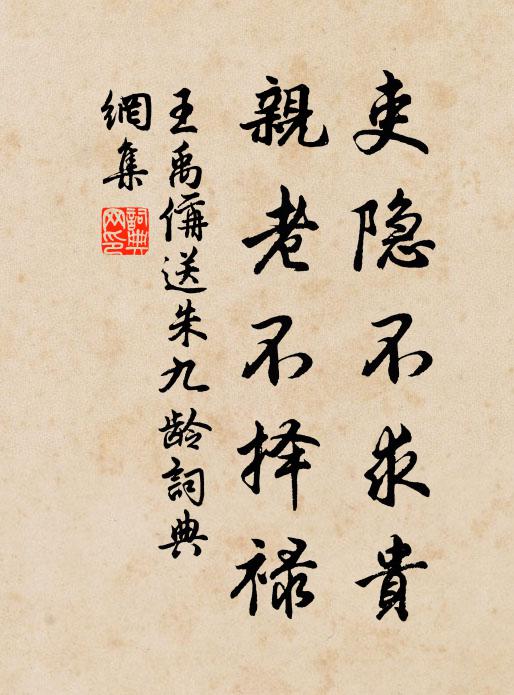 吏隐不求貴
親老不择禄
王禹偁送朱九龄詞典
網集
詞典网印